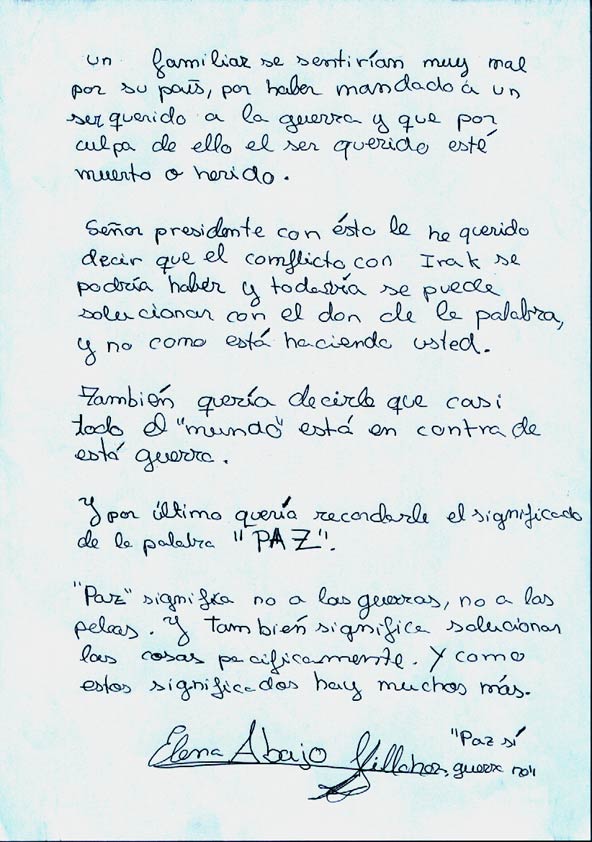 un familiar se sentirían muy mal
por su país, por haber mandado a un
ser querido a la guerra y que por
culpa de ello el ser querido esté
muerto o herido.
Señor presidente con ésto le he querido
decir que el conflicto con Irak se
podría haber y todavía se puede
solucionar con el don de la palabra,
y no como está haciendo usted.
También quería decirle que casi
todo el "mundo" está en contra de
está guerra.
Y por último quería recordarle el significado
de la palabra "PAZ".
"Paz" significa no a las guerras, no a las
peleas. Y también significa solucionar
las cosas pacificamente. Y como
estos significados hay muchos más.
"Paz sí
Elena Abajo guerra no"